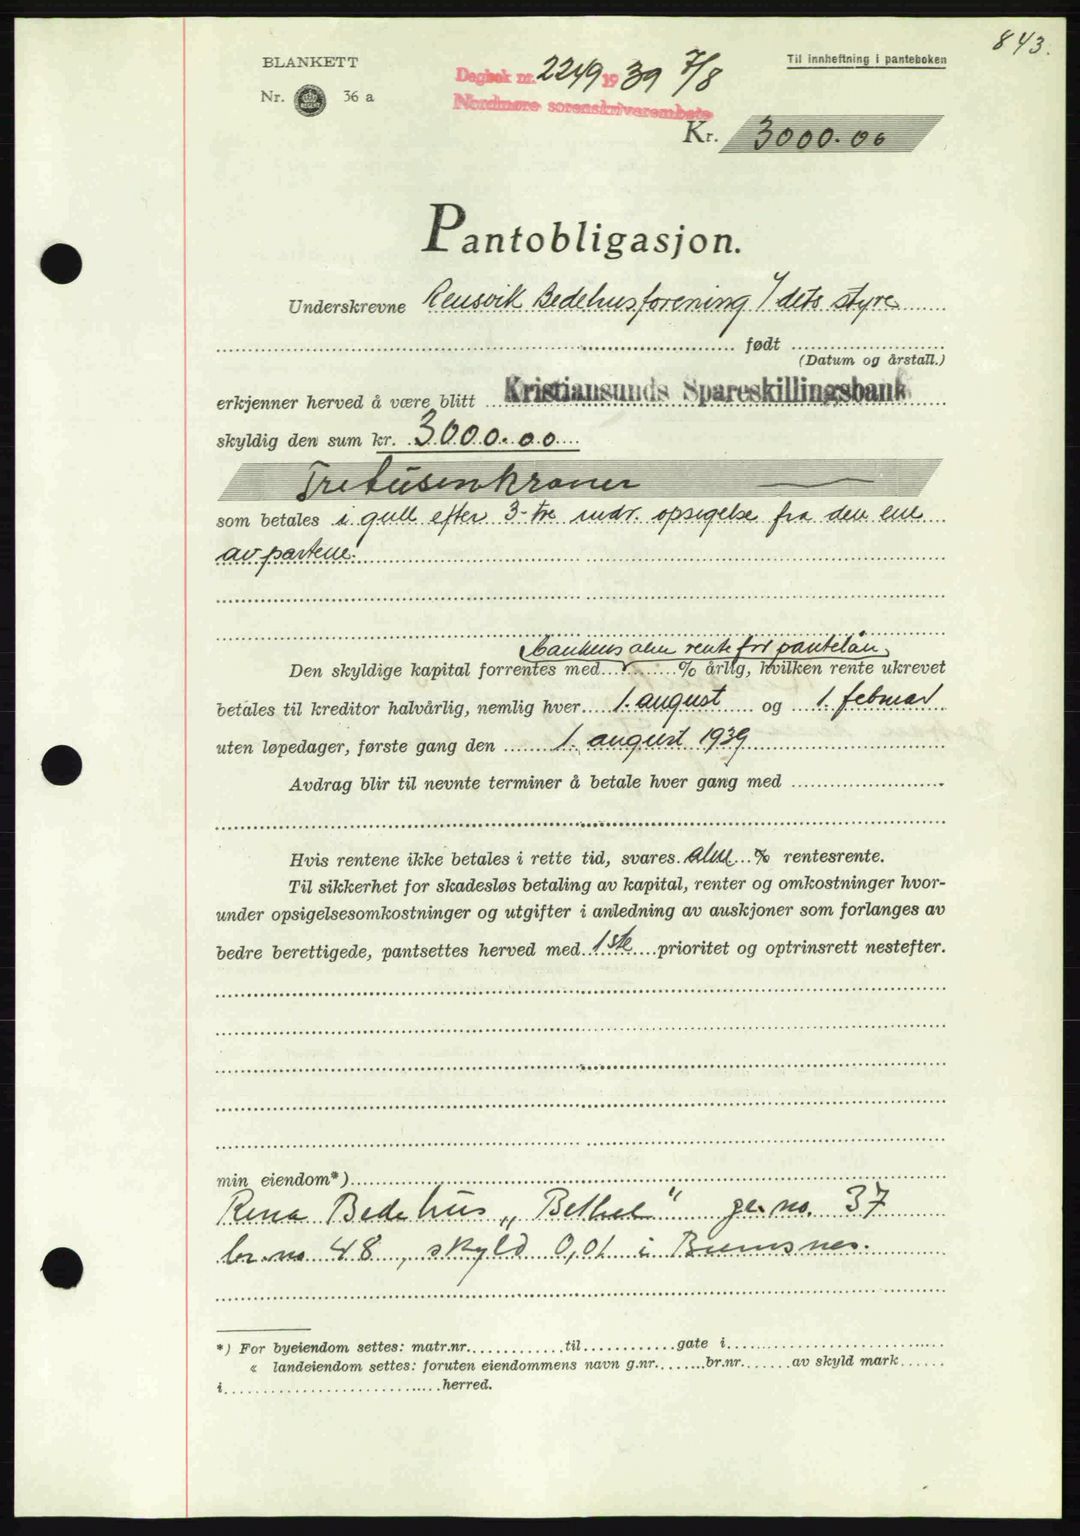 843.
BLANKETT
Nr. 36 a
Dagbok nr. 2249 1939 7/8
Nordmøre sorenskriverembete
Til innheftning i panteboken
Kr. 3000.00
Pantobligasjon.
Underskrevne Rensvik Bedehusforening v/ dets styre
født
(Datum og årstall.)
erkjenner herved å være blitt Kristiansunds Spareskillingsbank
skyldig den sum kr. 3000.00
Tretusenkroner
som betales i gull efter 3-tre mdr. opsigelse fra den ene
av partene.
bankens alm rente for pantelån
Den skyldige kapital forrentes med % årlig, hvilken rente ukrevet
betales til kreditor halvårlig, nemlig hver 1. august og 1. februar
uten løpedager, første gang den 1. august 1939
Avdrag blir til nevnte terminer å betale hver gang med
Hvis rentene ikke betales i rette tid, svares alm % rentesrente.
Til sikkerhet for skadesløs betaling av kapital, renter og omkostninger hvor-
under opsigelsesomkostninger og utgifter i anledning av auskjoner som forlanges av
bedre berettigede, pantsettes herved med 1ste prioritet og optrinsrett nestefter.
min eiendom*)
Rena Bedehus „Bethel" g.no. 37
br.no 48, skyld 0,01 i Bremsnes.
*) For byeiendom settes: matr.nr. til gate i
« landeiendom settes: foruten eiendommens navn g.nr. br.nr. av skyld mark
i herred.